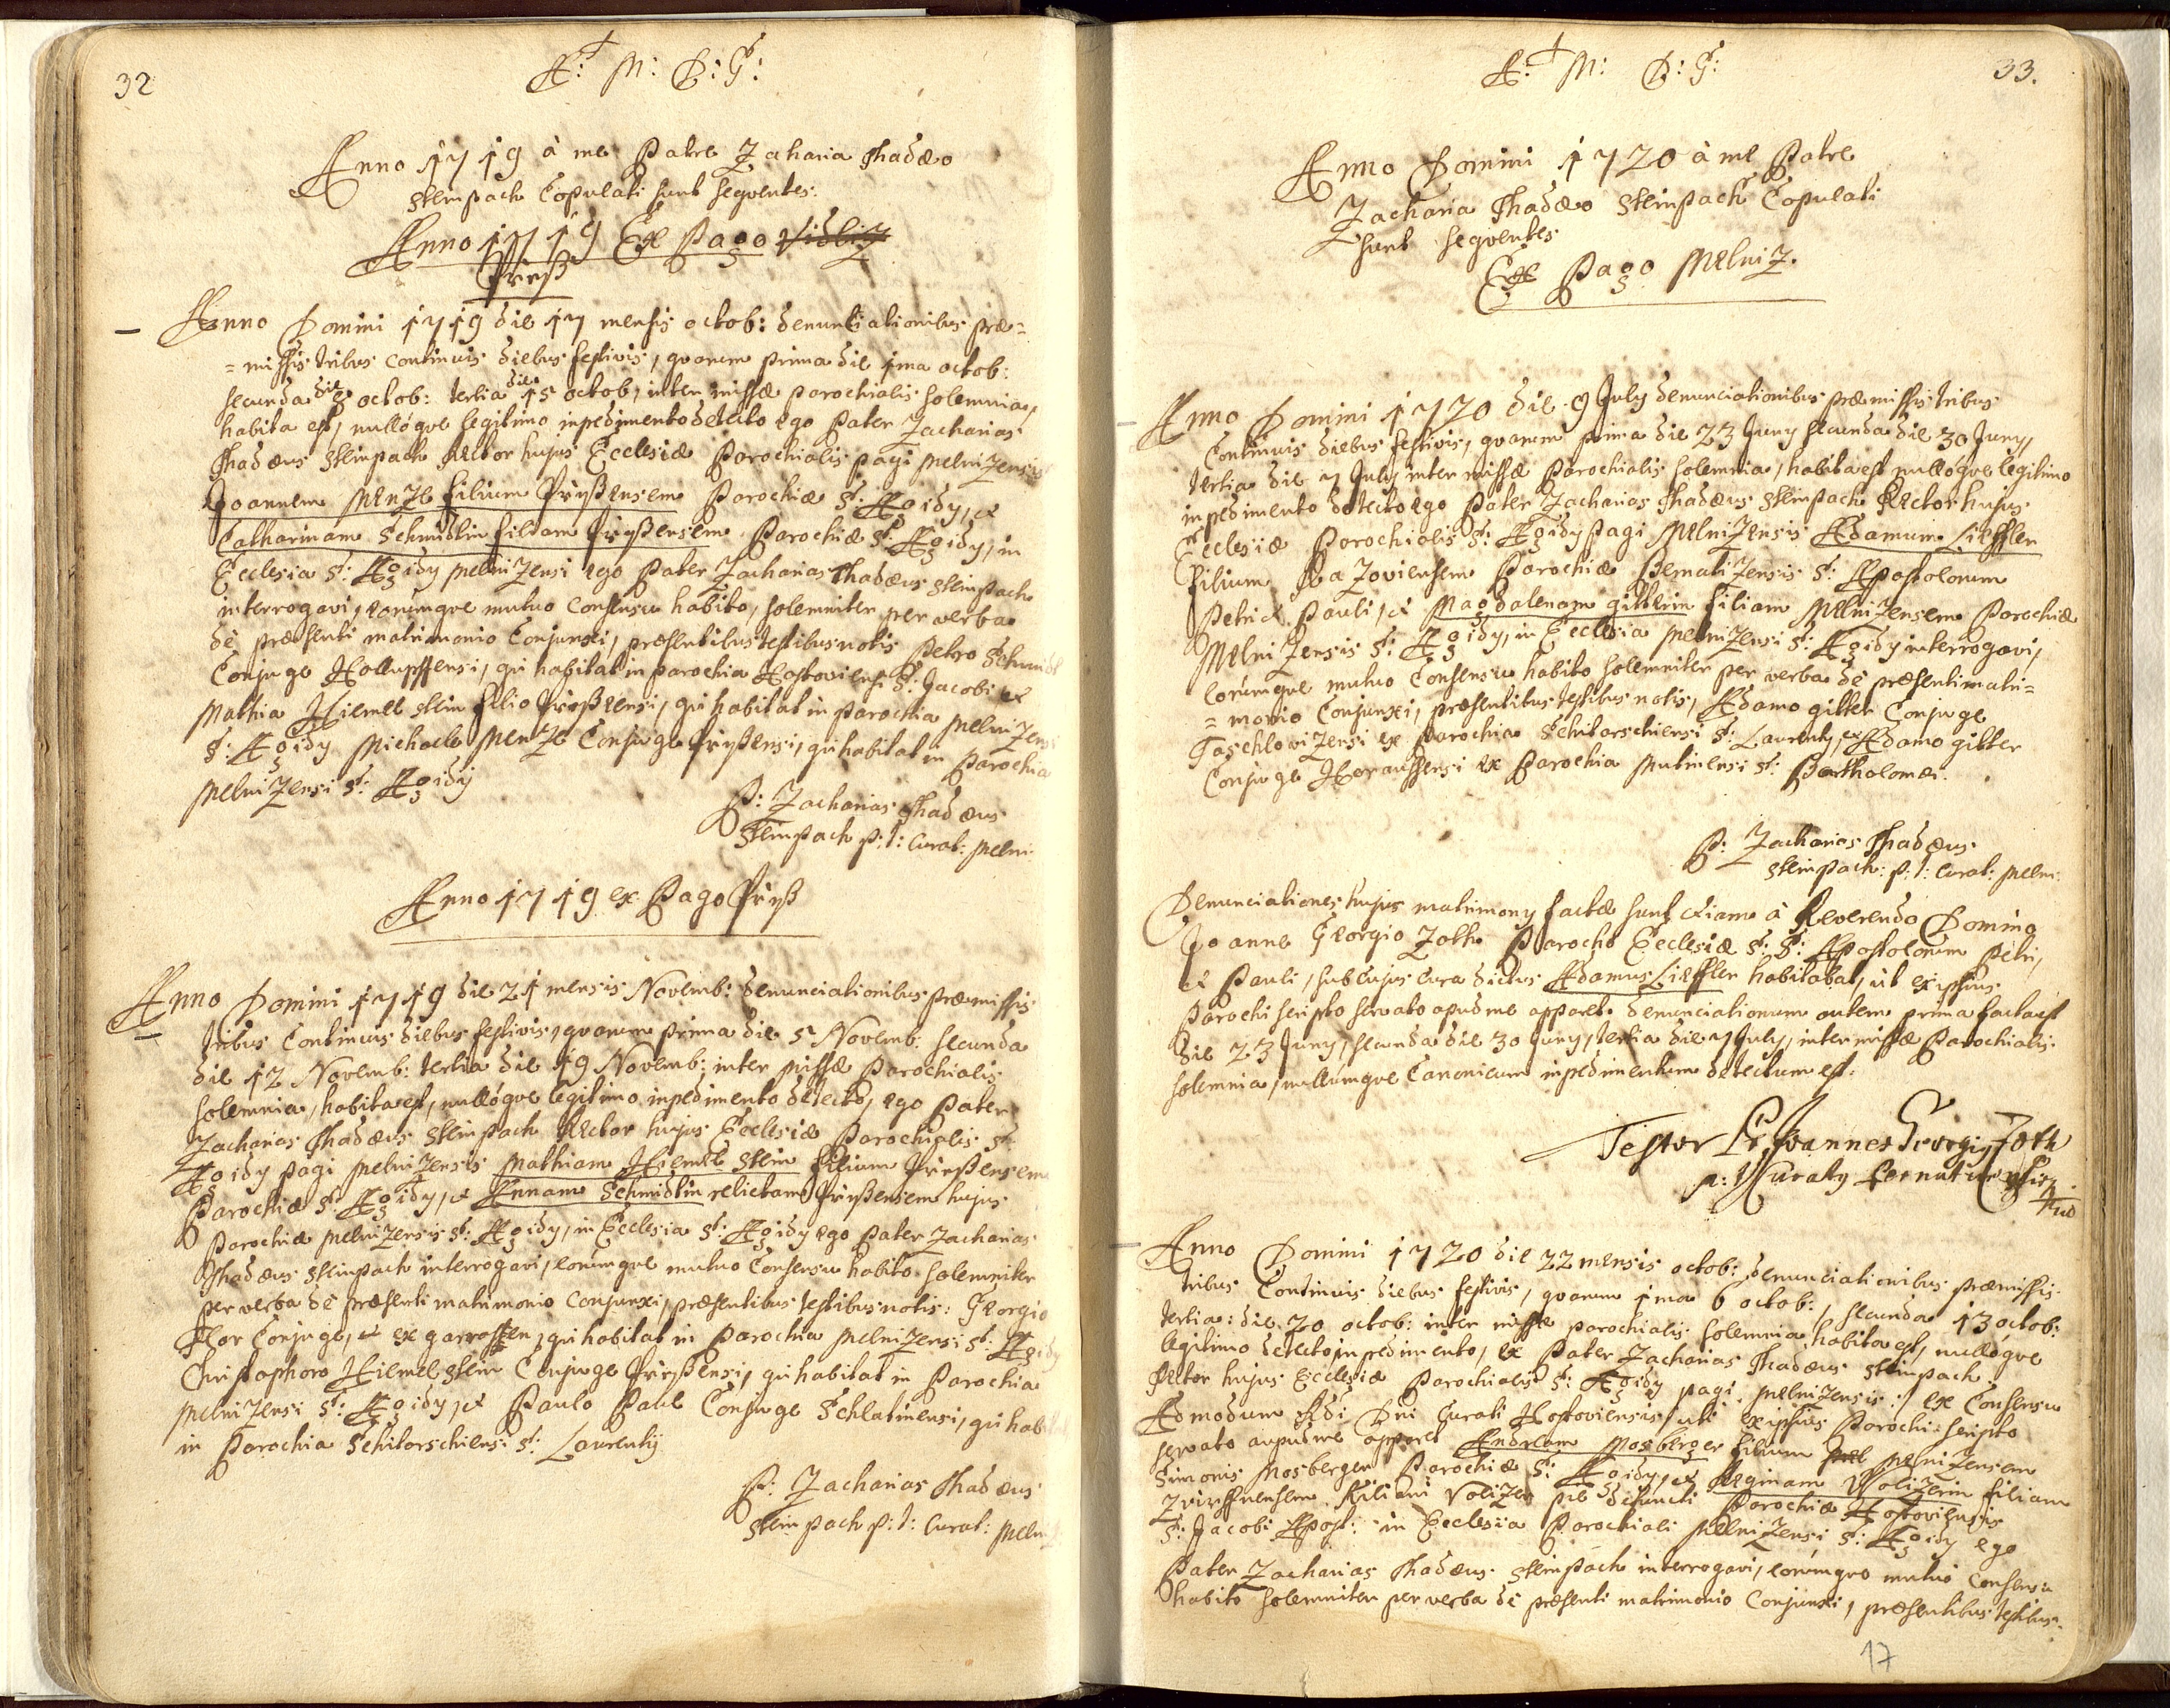 32
A: M: D: G:
Anno 1719 à me Patre Zacharia Thadæo
Steinpach Copulati sunt seqventes.
Anno 1719 Ex Pago Vidliz
Anno Domini 1719 die 17 mensis octob: denuntiationibus præ=
=missis tribus continuis diebus festivis, qvarum prima die 1ma octob:
secunda die 8 octob: tertia die 15 octob, inter missæ Parochialis solemnia,
habita est, nullóqve legitimo inpedimento detecto ego Pater Zacharias
Thadæus Steinpach Rector hujus Ecclesiæ Parochialis pagi Melnizensis
Joannem Menzl filium Parochiæ S: Ægidy, et
Catharinam Schmidlin filiam Parochiæ S: Ægidy, in
Ecclesia S: Ægidy Melnizensi ego Pater Zacharias Thadæus Steinpach
interrogavi, eorumqve mutuo Consensu habito, solemniter per verba
de præsenti matrimonio Conjunxi, præsentibus testibus notis Petro Schmidl
Conjuge qui habitat in parochia Hostoviensi S: Jacobi et
Mathia Hiemel Stein filio qui habitat in parochia Melnizensi
S: Ægidy Michaele Menzl Conjuge qui habitat in Parochia
Melnizensi S: Ægidy
P: Zacharias Thadæus
Steinpach p: t: Curat: Melni
Anno 1719 ex Pago
Anno Domini 1719 die 21 mensis Novemb: denunciationibus præmissis
tribus Continuis diebus festivis, qvarum prima die 5 Novemb: secunda
die 12 Novemb: tertia die 19 Novemb: inter Missæ Parochialis
solemnia, habita est, nullóqve legitimo inpedimento detecto, ego Pater
Zacharias Thadæus Steinpach Rector hujus Ecclesiæ Parochialis S:
Ægidy pagi Melnizensis Mathiam Hiemel Stein filium
Parochiæ S: Ægidy, et Annam Schmidlin relictam hujus
Parochiæ Melnizensis S: Ægidy, in Ecclesia S: Ægidy ego Pater Zacharias
Thadæus Steinpach interrogavi, eorumqve mutuo Consensu habito solemniter
per verba de præsenti matrimonio conjunxi, præsentibus testibus notis: Georgio
Conjuge, et ex qui habitat in Parochia Melnizensi S: Ægidy
Christophoro Hiemel Stein Conjuge qui habitat in Parochia
Melnizensi S: Ægidy, et Paulo Paul Conjuge Schlatinensi, qui habitat
in Parochia Schitarschiensi S: Laurentij
P: Zacharias Thadæus
Steinpach p: t: Curat: Meln
33.
A: M: D: G:
Anno Domini 1720 à me Patre
Zacharia Thadæo Steinpach Copulati
sunt seqventes
Ex Pago Melniz.
Anno Domini 1720 die 9 July denunciationibus præmissis tribus
Continuis diebus festivis, qvarum prima die 23 Juny secunda die 30 Juny,
tertia die 7 July inter missæ Parochialis solemnia, habita est nullóqve legitimo
inpedimento detecto ego Pater Zacharias Thadæus Steinpach Rector hujus
Ecclesiæ Parochialis S: Ægidy Pagi Melnizensis Adamum Lieffler
Filium Parochiæ S: Apostolorum
Petri et Pauli, et Magdalenam gitterin filiam Melnizensem Parochiæ
Melnizensis S: Ægidy, in Ecclesia Melnizensi S: Ægidy interrogavi,
eorumqve mutuo Consensu habito solemniter per verba de præsenti matri=
=monio Conjunxi, præsentibus testibus notis, Adamo gitter Conjuge
Taschlovizensi ex parochia Schitarschiensi S: Laurenty, et Adamo gitter
Conjuge Horaußensi ex Parochia Mutinensi S: Bartholomæi.
P: Zacharias Thadæus
Steinpach: p: t: Curat: Melni:
Denunciationes hujus matrimony factæ sunt etiam à Reverendo Domino
Joanne Georgio Zoth Parocho Ecclesiæ S: S: Apostolorum Petri,
et Pauli, sub cujus cura dictus Adamus Lieffler habitabat, ut ex ipsius
Parochi scripto servato apud me apparet. denunciationum autem prima facta est
die 23 Juny, secunda die 30 Juny, tertia die 7 July, inter missæ Parochialis
solemnia, nullumqve Canonicum inpedimentum detectum est.
Testor P. Joannes Georgig Zoth
p: t: Curatg
Anno Domini 1720 die 22 mensis octob: denunciationibus præmissis
tribus Continuis diebus festivis, qvarum 1ma 6 octob:, secunda 13 octob:
tertia: die 20 octob: inter missæ parochialis solemnia habita est, nullóqve
legitimo detecto inpedimento, ex Pater Zacharias Thadæus Steinpach
Rector hujus Ecclesiæ Parochialis S: Ægidy pagi Melnizensis :/ ex Consensu
Admodum Rdi Dni Curati Hostoviensis / uti ex ipsius Parochi scripto
servato aupud me apparet Andream Mosberger filium Melnizensem
Simonis Mosberger Parochiæ S: Ægidy, et Reginam Volizerin filiam
Kiliani Volizer pie defuncti Parochiæ Hostoviensis
S: Jacobi Apost: in Ecclesia Parochiali Melnizensi S: Ægidy ego
Pater Zacharias Thadæus Steinpach interrogavi, eorumqve mutuo Consensu
habito solemniter per verba de præsenti matrimonio Conjunxi, præsentibus testibus.
17